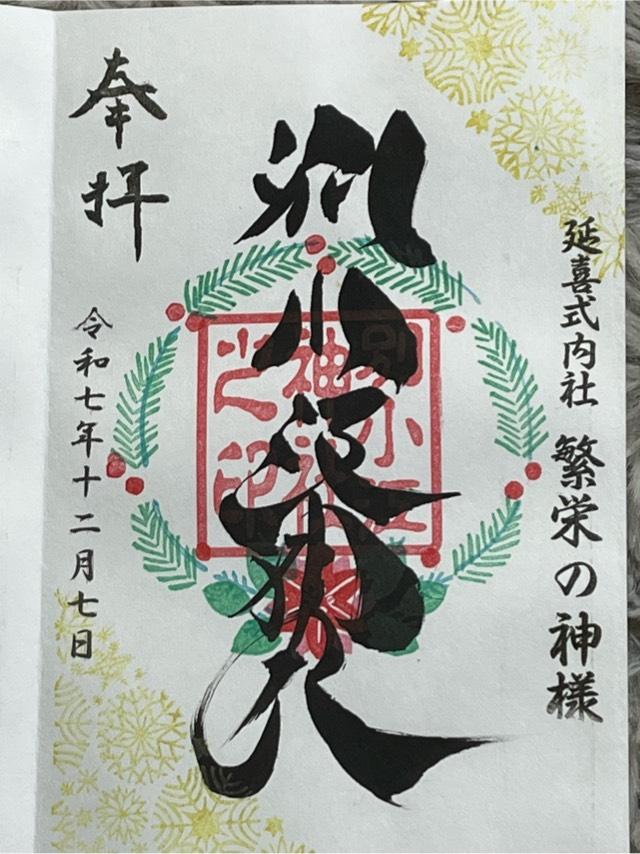 延喜式内社 繁栄の神様
別小江神社
別小江
神社
之印
奉拝
令和七年十二月七日